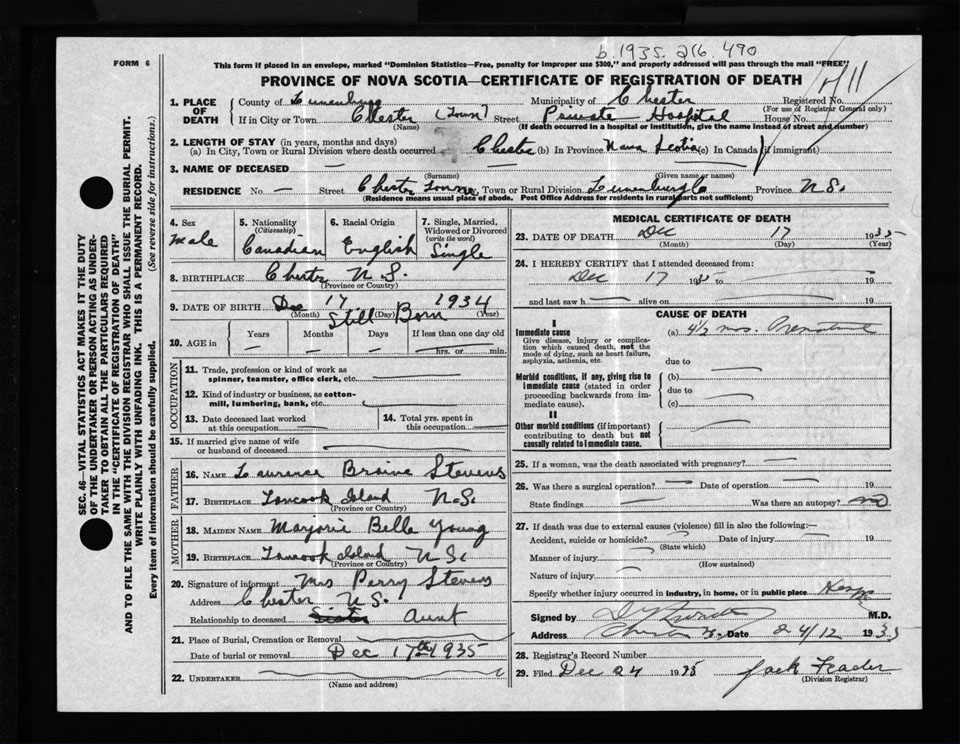 b. 1935. 216. 490
FORM 6
This form if placed in an envelope, marked "Dominion Statistics—Free, penalty for improper use $300," and properly addressed will pass through the mail "FREE"
PROVINCE OF NOVA SCOTIA—CERTIFICATE OF REGISTRATION OF DEATH
1. PLACE OF DEATH
County of Lunenburg Municipality of Chester Registered No.
(For use of Registrar General only)
If in City or Town Chester (Town) Street Private Hospital House No.
(Name) (If death occurred in a hospital or institution, give the name instead of street and number)
2. LENGTH OF STAY (in years, months and days)
(a) In City, Town or Rural Division where death occurred Chester (b) In Province Nova Scotia (c) In Canada (if immigrant)
3. NAME OF DECEASED
(Surname) (Given name or names)
RESIDENCE No. — Street Chester Town, Town or Rural Division Lunenburg Co Province N.S.
(Residence means usual place of abode. Post Office Address for residents in rural parts not sufficient)
4. Sex
male
5. Nationality
(Citizenship)
Canadian
6. Racial Origin
English
7. Single, Married,
Widowed or Divorced
(write the word)
Single
8. BIRTHPLACE Chester N.S.
(Province or Country)
9. DATE OF BIRTH Dec 17 1934
(Month) (Day) (Year)
Still Born
10. AGE in
Years Months Days If less than one day old
hrs. or min.
OCCUPATION
11. Trade, profession or kind of work as
spinner, teamster, office clerk, etc.
12. Kind of industry or business, as cotton-
mill, lumbering, bank, etc.
13. Date deceased last worked
at this occupation
14. Total yrs. spent in
this occupation
15. If married give name of wife
or husband of deceased
FATHER
16. NAME Laurence Braine Stevens
17. BIRTHPLACE Tancook Island N.S.
(Province or Country)
MOTHER
18. MAIDEN NAME Marjorie Belle Young
19. BIRTHPLACE Tancook Island N.S.
(Province or Country)
20. Signature of informant Mrs Perry Stevens
Address Chester N.S.
Relationship to deceased Sister Aunt
21. Place of Burial, Cremation or Removal
Date of burial or removal Dec 17th 1935
22. UNDERTAKER
(Name and address)
MEDICAL CERTIFICATE OF DEATH
23. DATE OF DEATH Dec 17 1935
(Month) (Day) (Year)
24. I HEREBY CERTIFY that I attended deceased from:
Dec 17 1935 to 19
and last saw h alive on 19
CAUSE OF DEATH
I
Immediate cause
Give disease, injury or complica-
tion which caused death, not the
mode of dying, such as heart failure,
asphyxia, asthenia, etc.
(a) 4½ mos. Premature
due to
Morbid conditions, if any, giving rise to
immediate cause (stated in order
proceeding backwards from im-
mediate cause).
(b)
due to
(c)
II
Other morbid conditions (if important)
contributing to death but not
causally related to immediate cause.
25. If a woman, was the death associated with pregnancy?
26. Was there a surgical operation? Date of operation 19
State findings Was there an autopsy? no
27. If death was due to external causes (violence) fill in also the following:—
Accident, suicide or homicide? Date of injury 19
(State which)
Manner of injury
(How sustained)
Nature of injury
Specify whether injury occurred in industry, in home, or in public place
Signed by M.D.
Address Date 24/12 1935
28. Registrar's Record Number
29. Filed Dec 24 1935
(Division Registrar)
SEC. 46—VITAL STATISTICS ACT MAKES IT THE DUTY
OF THE UNDERTAKER OR PERSON ACTING AS UNDER-
TAKER TO OBTAIN ALL THE PARTICULARS REQUIRED
IN THE "CERTIFICATE OF REGISTRATION OF DEATH"
AND TO FILE THE SAME WITH THE DIVISION REGISTRAR WHO SHALL ISSUE THE BURIAL PERMIT.
WRITE PLAINLY WITH UNFADING INK. THIS IS A PERMANENT RECORD.
Every item of information should be carefully supplied. (See reverse side for instructions.)